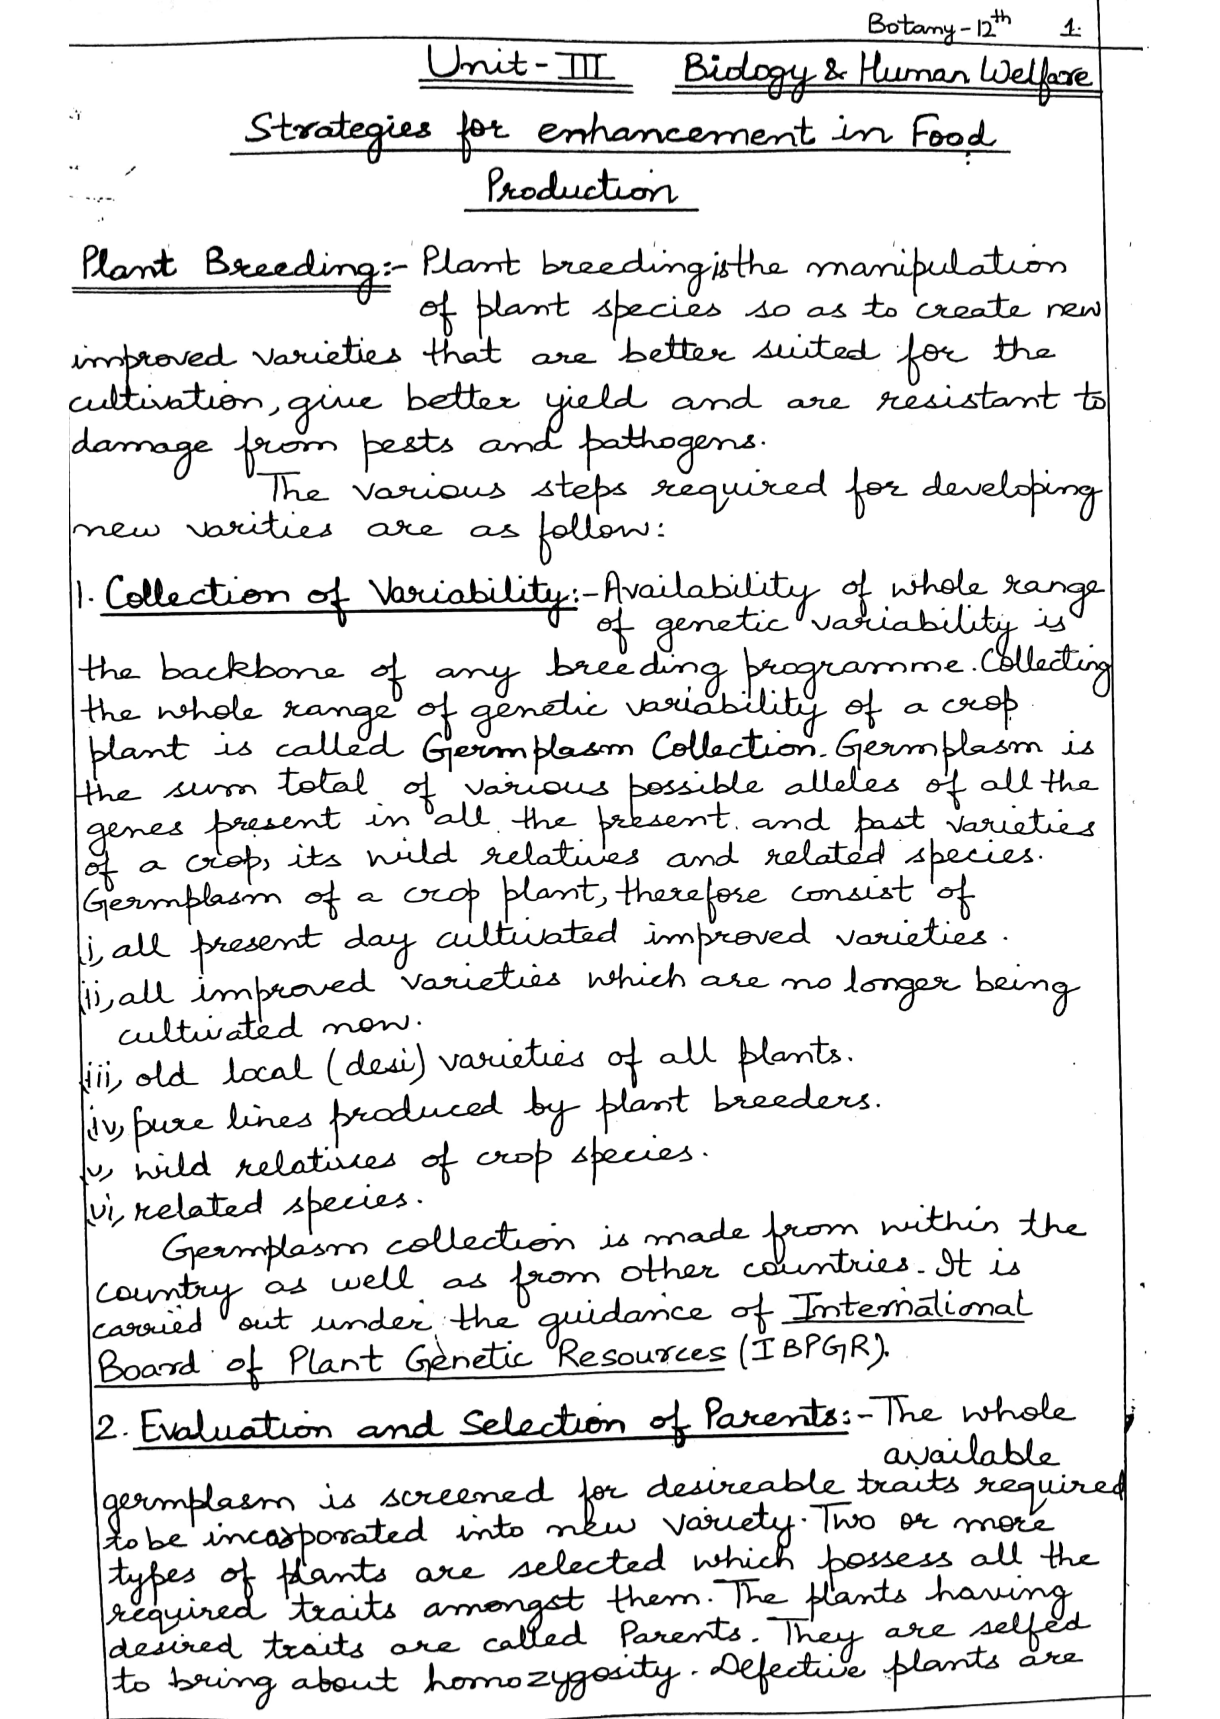 Botany-12th 1.
Unit-III Biology & Human Welfare
Strategies for enhancement in Food
Production
Plant Breeding:- Plant breeding is the manipulation
of plant species so as to create new
improved varieties that are better suited for the
cultivation, give better yield and are resistant to
damage from pests and pathogens.
The various steps required for developing
new varities are as follow:
1. Collection of Variability:- Availability of whole range
of genetic variability is
the backbone of any breeding programme. Collecting
the whole range of genetic variability of a crop
plant is called Germplasm Collection. Germplasm is
the sum total of various possible alleles of all the
genes present in all the present and past varieties
of a crop, its wild relatives and related species.
Germplasm of a crop plant, therefore consist of
i, all present day cultivated improved varieties.
ii, all improved varieties which are no longer being
cultivated now.
iii, old local (desi) varieties of all plants.
iv, pure lines produced by plant breeders.
v, wild relatives of crop species.
vi, related species.
Germplasm collection is made from within the
country as well as from other countries. It is
carried out under the guidance of International
Board of Plant Genetic Resources (IBPGR).
2. Evaluation and Selection of Parents:- The whole
available
germplasm is screened for desireable traits required
to be incorporated into new variety. Two or more
types of plants are selected which possess all the
required traits amongst them. The plants having
desired traits are called Parents. They are selfed
to bring about homozygosity. Defective plants are